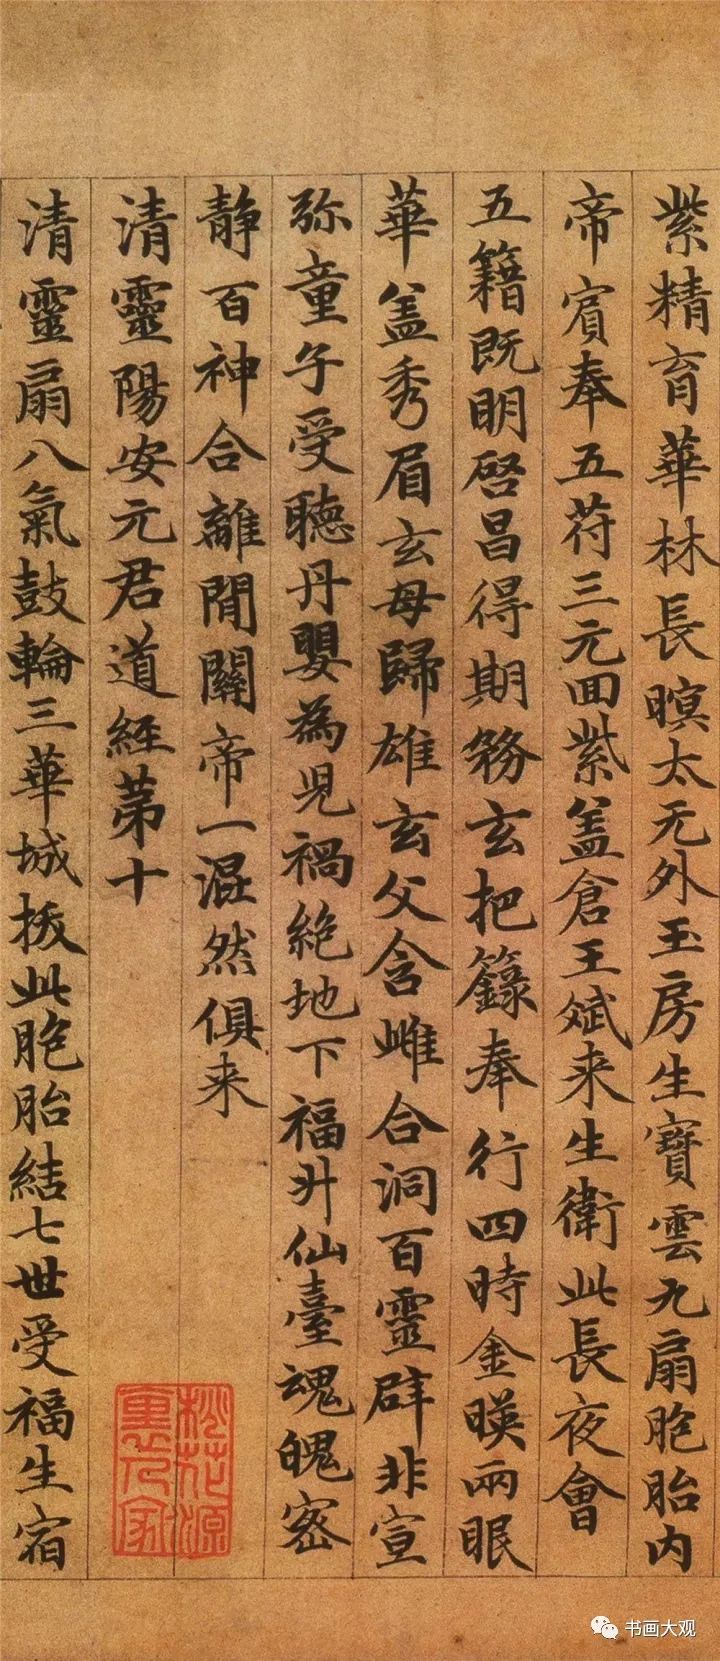 紫精育華林長暝太无外玉房生寶雲九扇胞胎内
帝賔奉五苻三元回紫盖倉王斌来生衛此長夜會
五籍既明啓昌得期務玄把籙奉行四時金暎兩眼
華盖秀眉玄母歸雄玄父含雌合洞百靈辟非宣
弥童子受聴丹嬰為児禍絶地下福升仙臺魂魄密
静百神合離閒關帝一混然俱来
清靈陽安元君道經苐十
清靈扇八氣鼓輪三華城拔此胞胎結七世受福生宿
桃花源
裏人家
书画大观